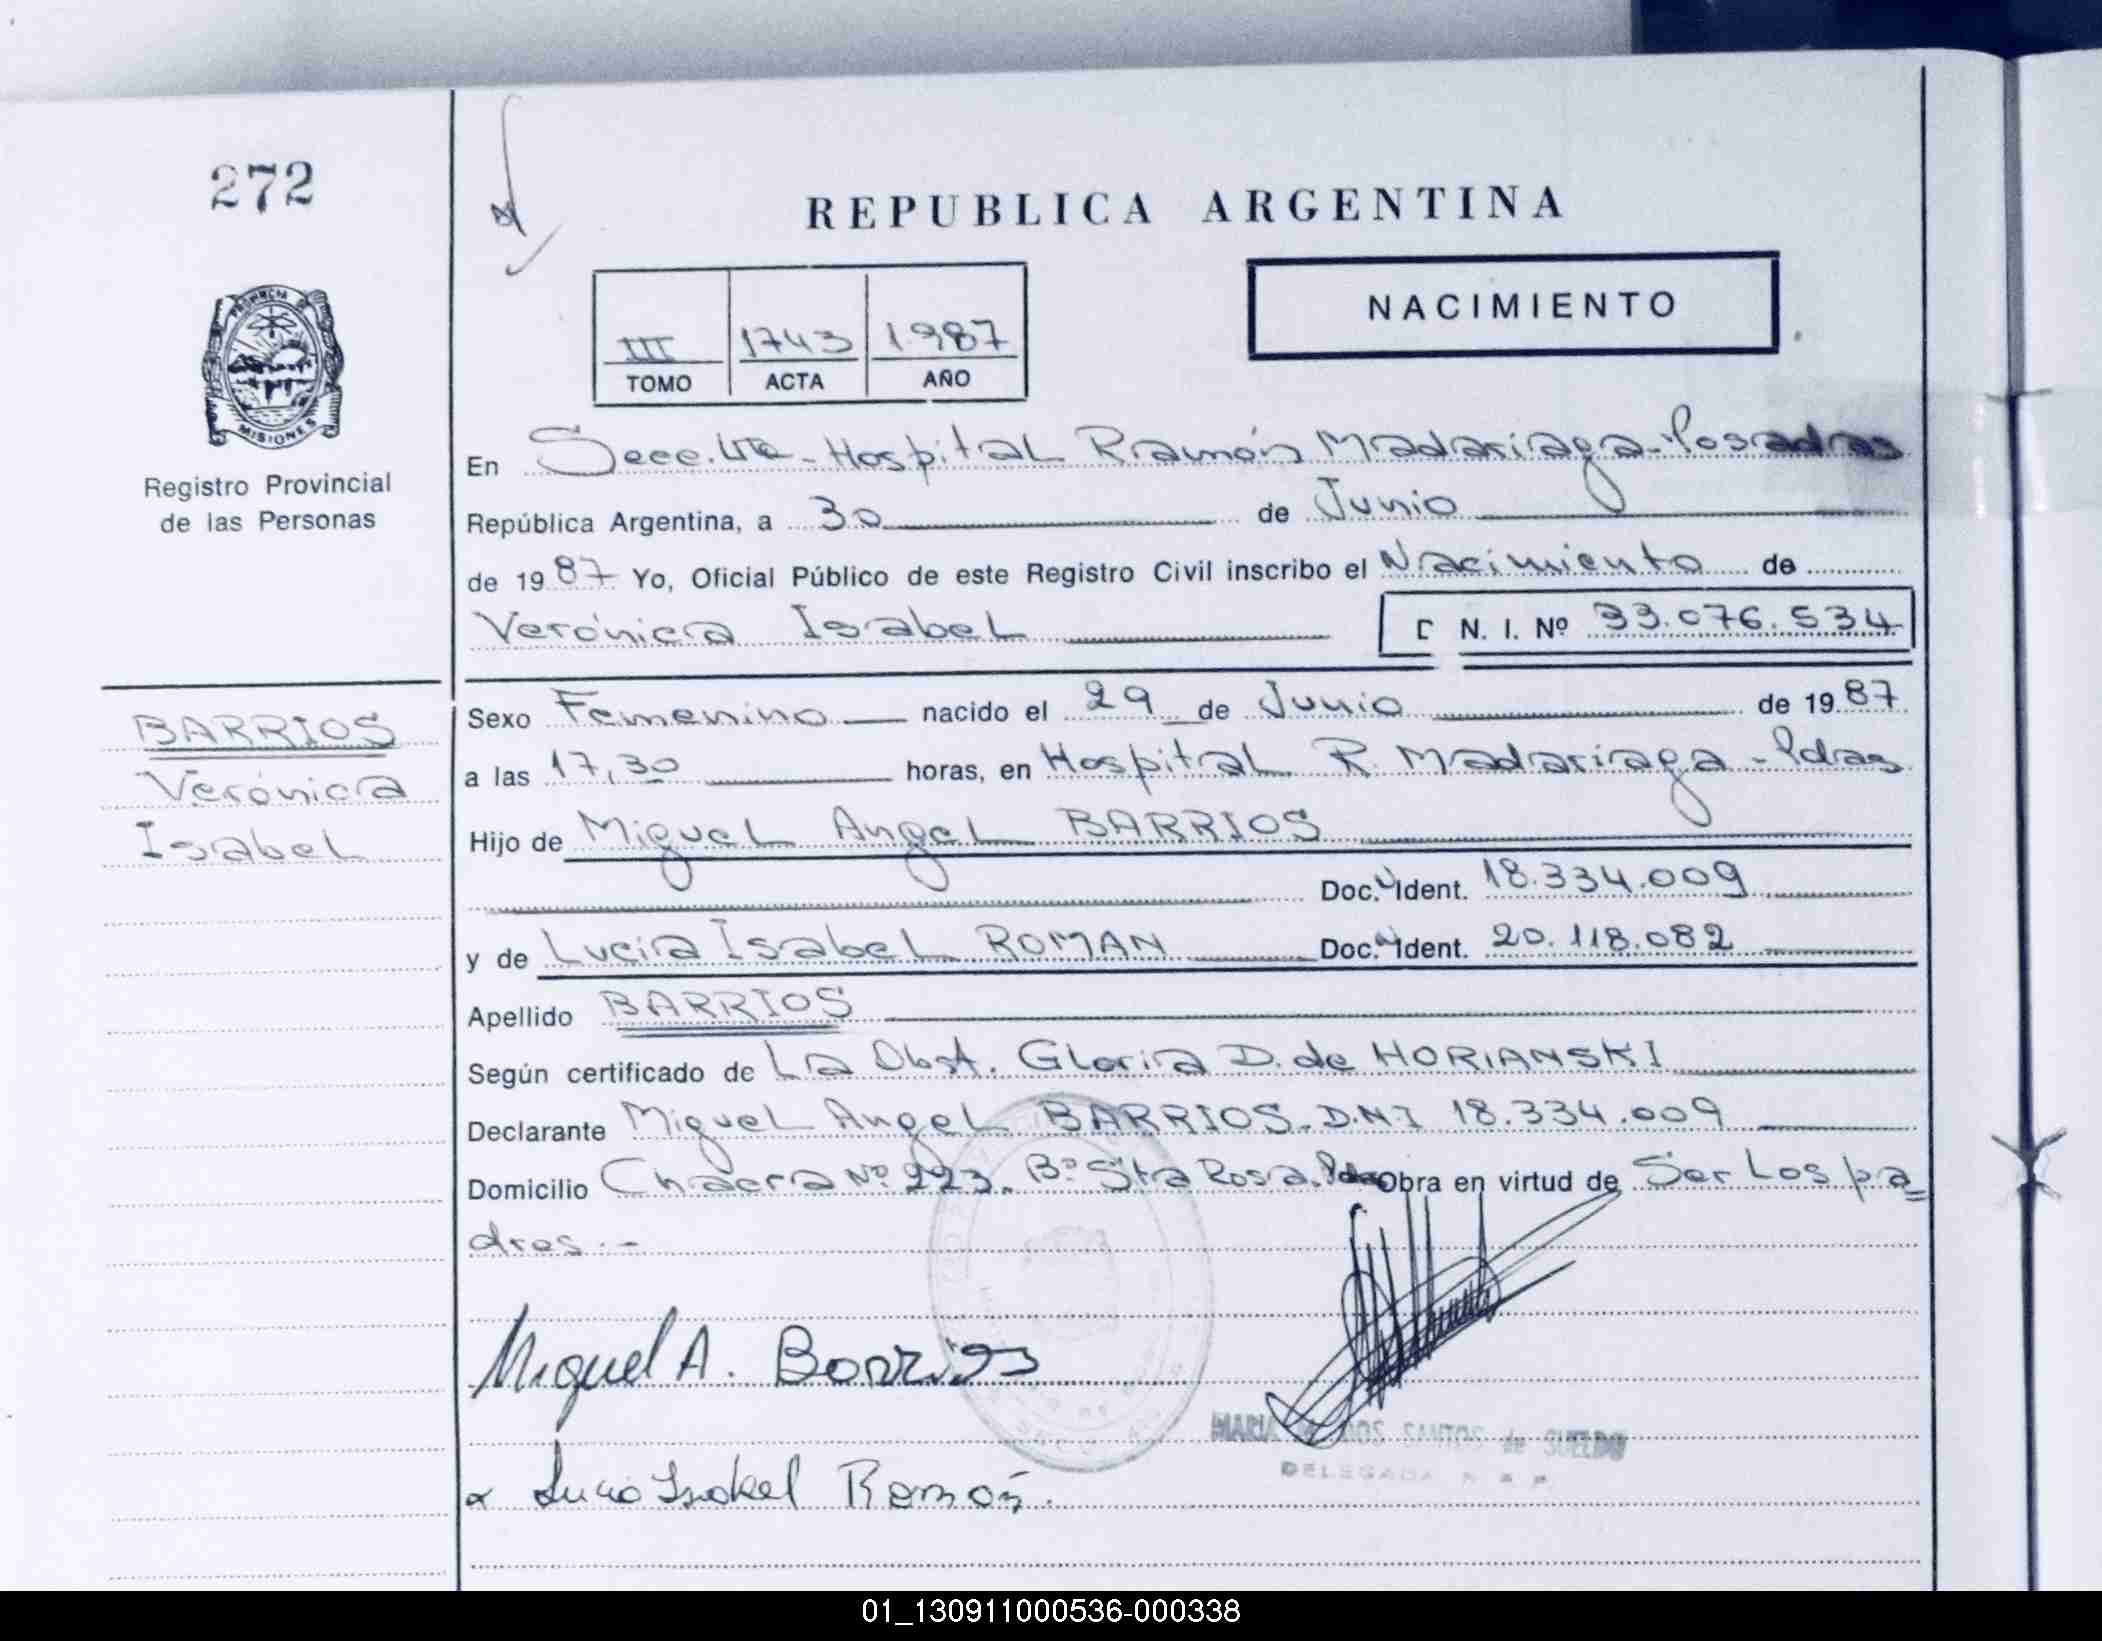 272
REPUBLICA ARGENTINA
NACIMIENTO
III 1743 1987
TOMO ACTA AÑO
PROVINCIA
MISIONES
Registro Provincial
de las Personas
En Secc. 4ta - Hospital Ramón Madariaga - Posadas
República Argentina, a 30 de Junio
de 1987 Yo, Oficial Público de este Registro Civil inscribo el Nacimiento de
Verónica Isabel D N. I. Nº 33.076.534
BARRIOS
Verónica
Isabel
Sexo Femenino nacido el 29 de Junio de 1987
a las 17,30 horas, en Hospital R. Madariaga - Pdas
Hijo de Miguel Angel BARRIOS
Doc. Ident. 18.334.009
y de Lucia Isabel ROMAN Doc. Ident. 20.118.082
Apellido BARRIOS
Según certificado de La Obst. Gloria D. de HORIANSKI
Declarante Miguel Angel BARRIOS - D.N.I 18.334.009
Domicilio Chacra Nº 223. Bº Sta Rosa. Pdas Obra en virtud de Ser Los pa=
dres.-
Miguel A. Barrios
Lucia Isabel Román.
MARIA DOS SANTOS de SUELDO
DELEGADA
01_130911000536-000338